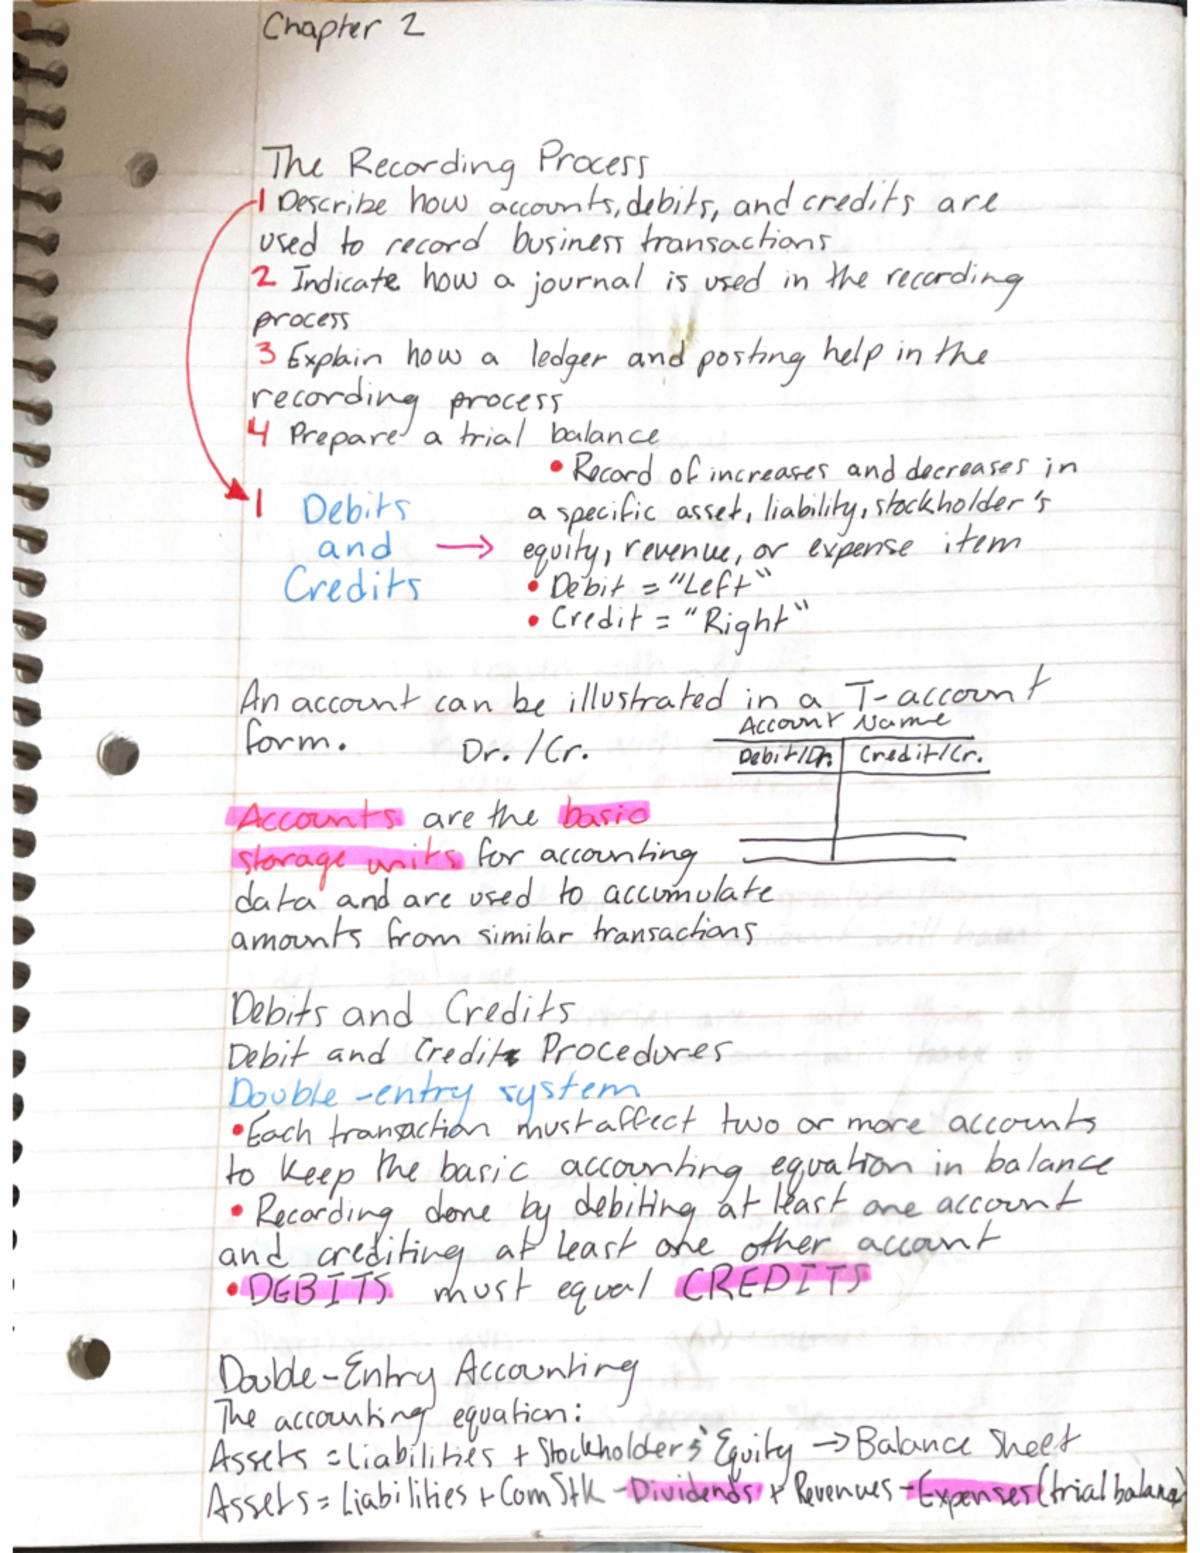 Chapter 2
The Recording Process
1 Describe how accounts, debits, and credits are
used to record business transactions
2 Indicate how a journal is used in the recording
process
3 Explain how a ledger and posting help in the
recording process
4 Prepare a trial balance
1 Debits
and
Credits
• Record of increases and decreases in
a specific asset, liability, stockholder's
equity, revenue, or expense item
• Debit = "Left"
• Credit = "Right"
An account can be illustrated in a T-account
form. Dr. /Cr.
Account Name
Debit/Dr. Credit/Cr.
Accounts are the basic
storage units for accounting
data and are used to accumulate
amounts from similar transactions
Debits and Credits
Debit and Credit Procedures
Double-entry system
• Each transaction must affect two or more accounts
to keep the basic accounting equation in balance
• Recording done by debiting at least one account
and crediting at least one other account
• DEBITS must equal CREDITS
Double-Entry Accounting
The accounting equation:
Assets = Liabilities + Stockholders' Equity → Balance Sheet
Assets = Liabilities + Com Stk - Dividends + Revenues - Expenses (trial balance)